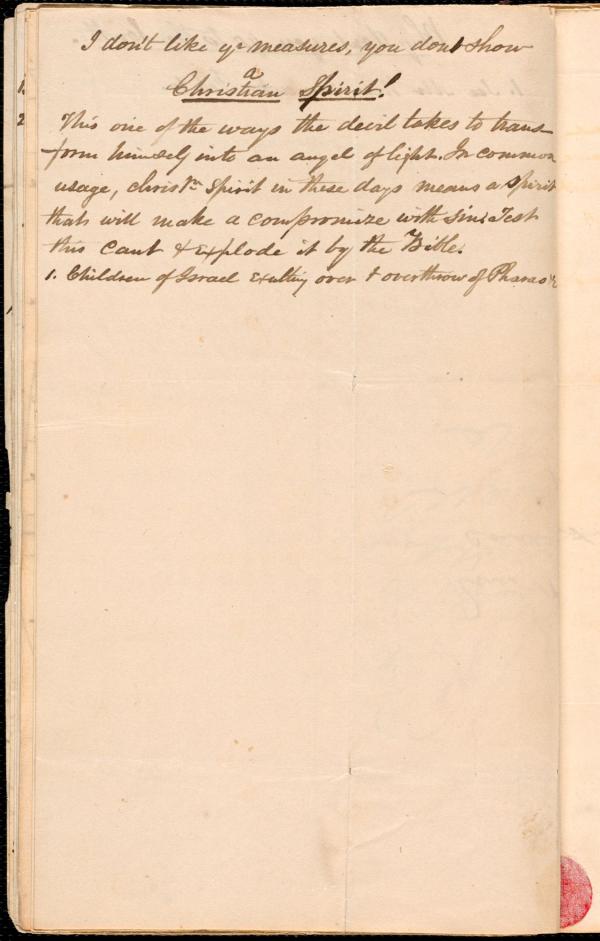 I don't like yr measures, you dont show
a
Christian Spirit!
This one of the ways the devil takes to trans-
form himself into an angel of light. In common
usage, chris'n Spirit in these days means a spirit
thats will make a compromize with sin. Test
this cant & explode it by the Bible.
1. Children of Israel Exulting over & overthrow of Pharao &c